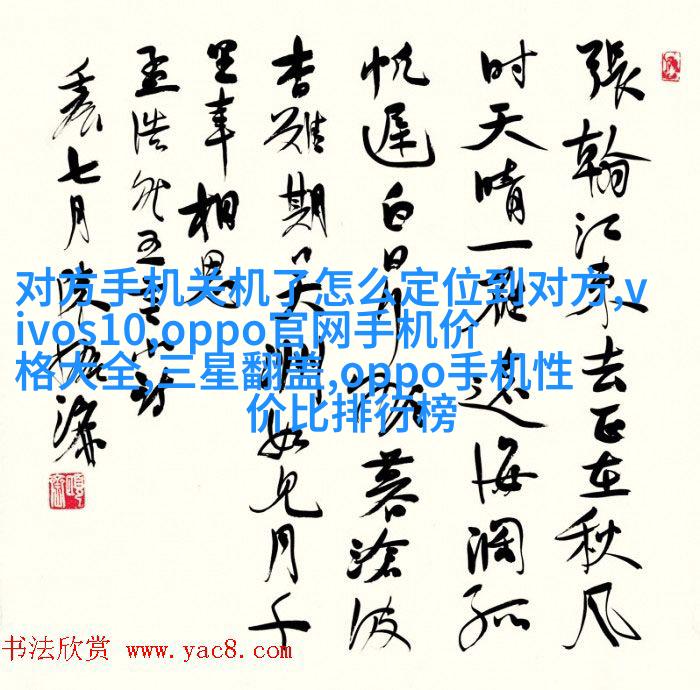 張翰江東去正在秋风
时天晴一雁远海阔孤
帆遲白日行欲暮滄波
杳難期吴洲如见月千
里幸相思
孟浩然五言小詩
七月陳振濂
对方手机关机了怎么定位到对方,v
ivos10,oppo官网手机价
格大全,三星翻盖,oppo手机性
价比排行榜
书法欣赏 www.yac8.com